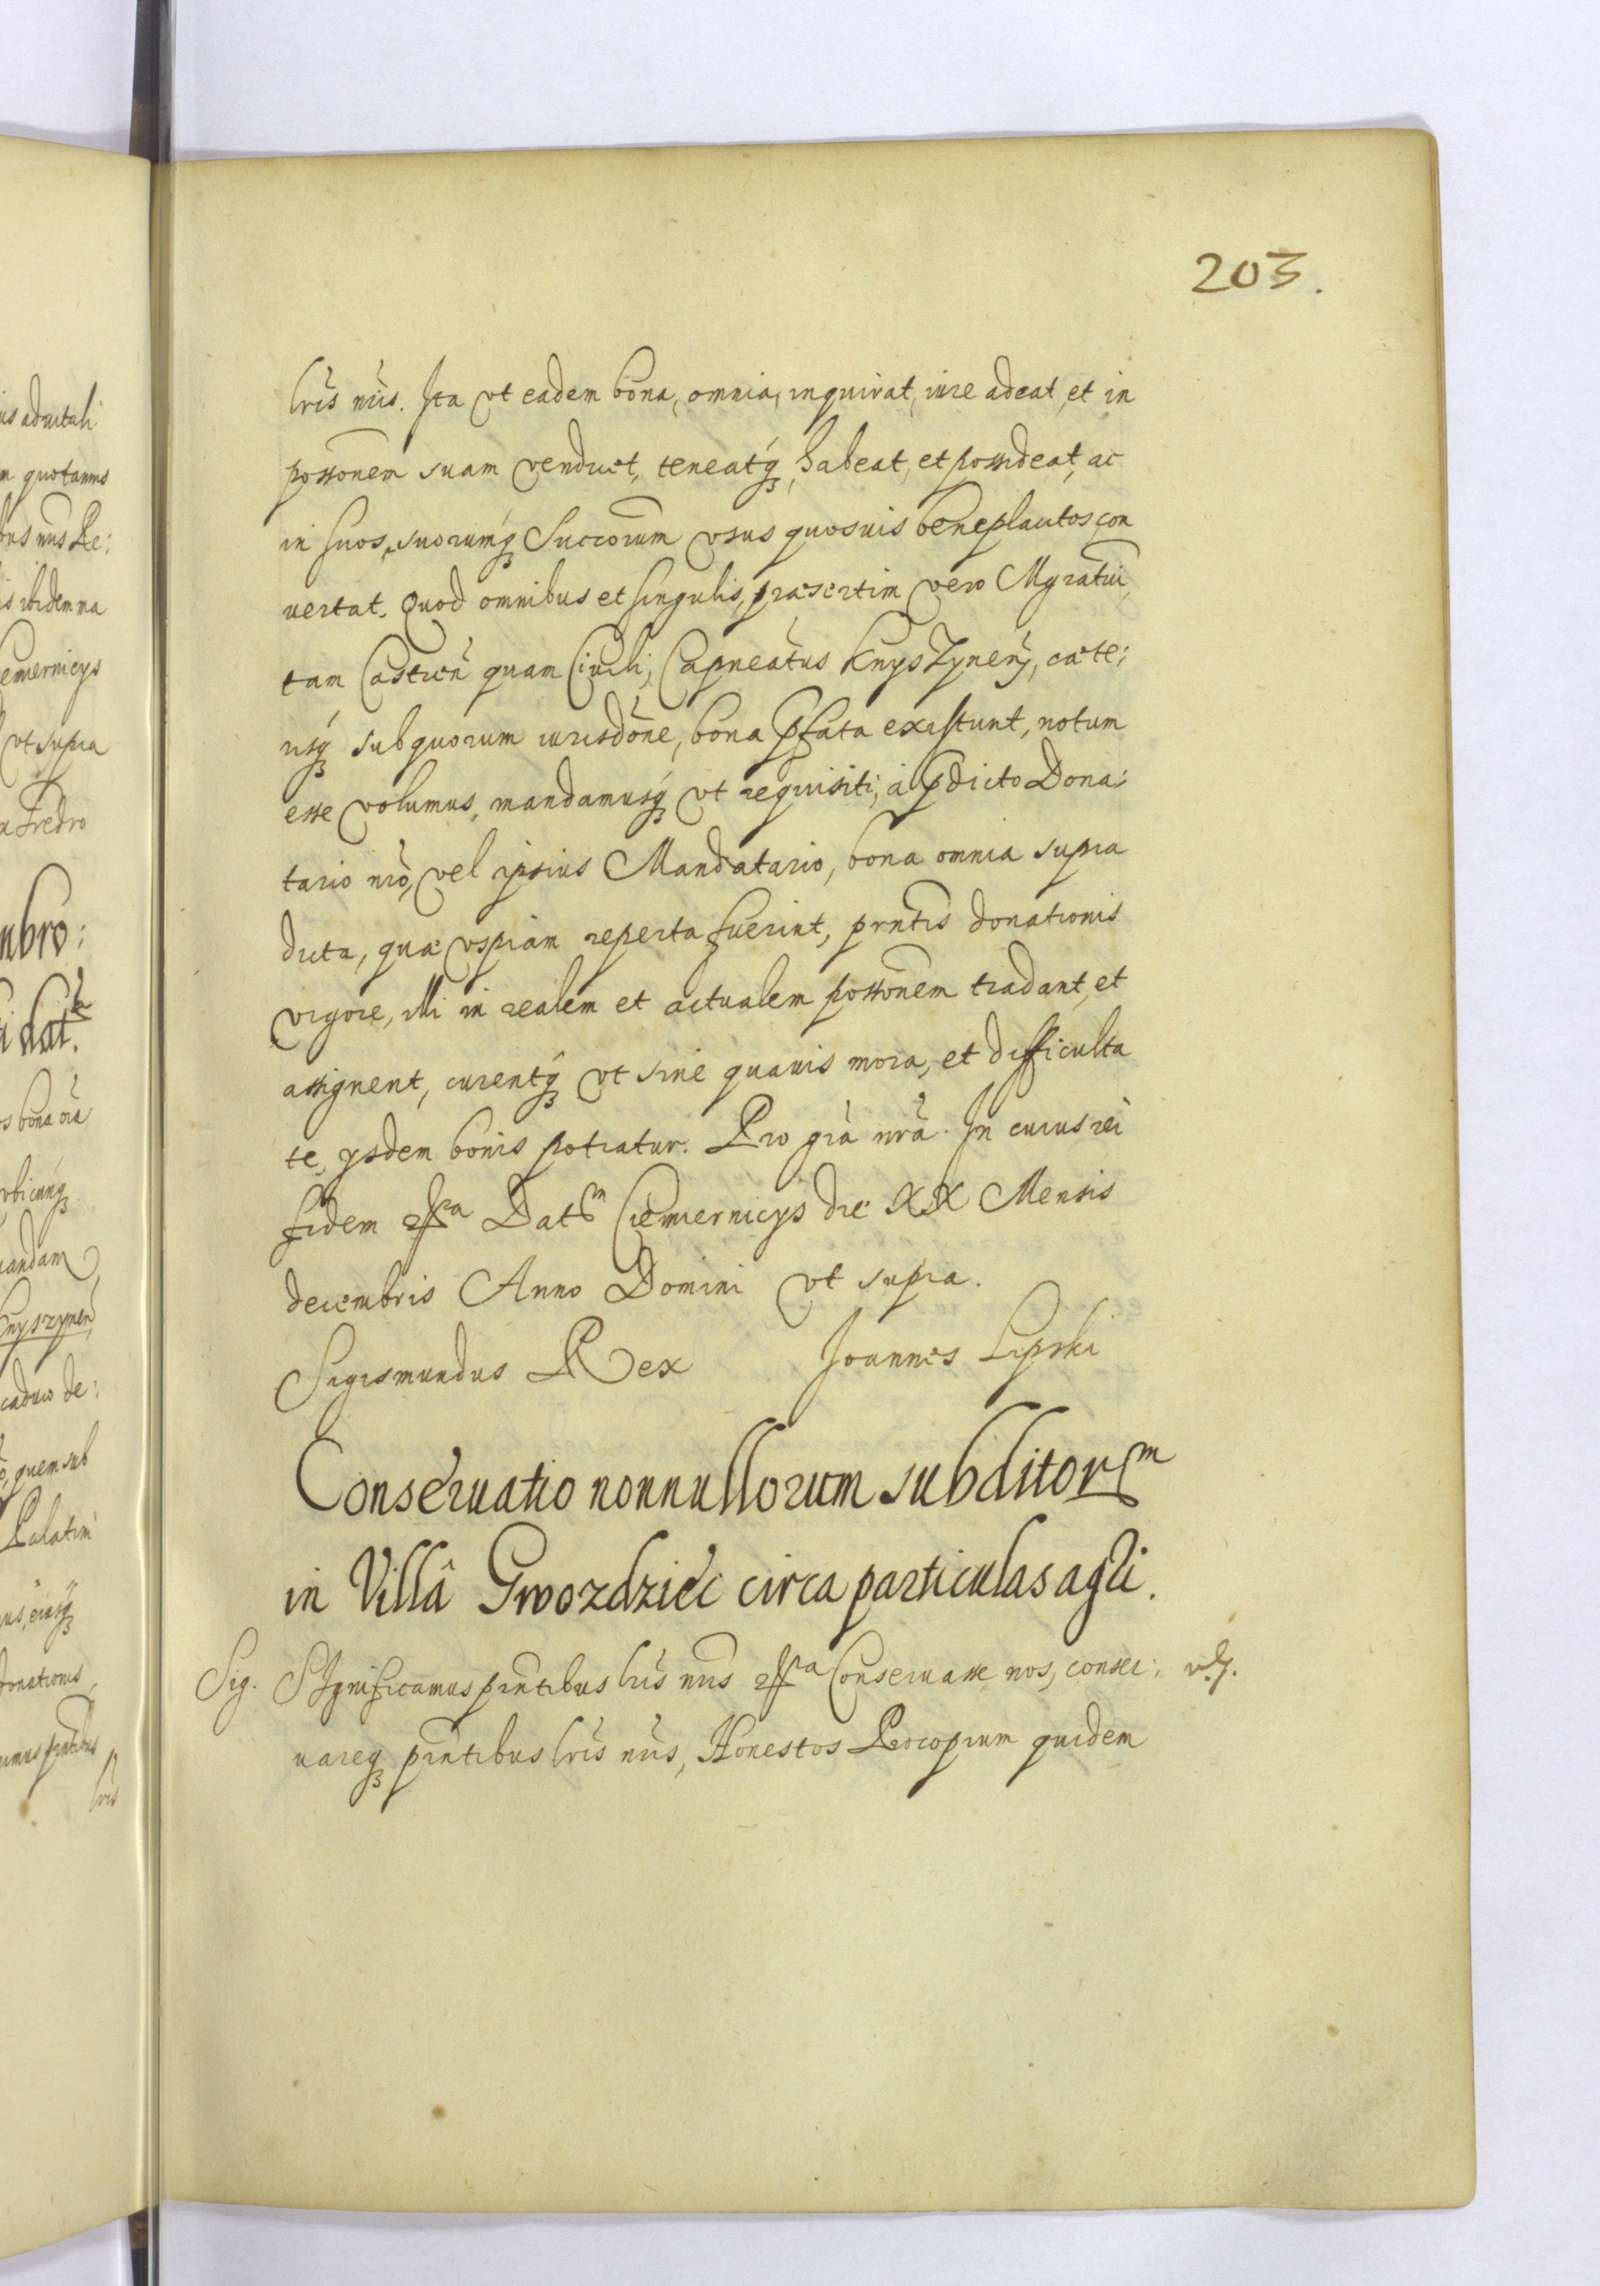 203.
lris nris. Ita vt eadem bona, omnia, inquirat, iure adeat, et in
possonem suam vendicet, teneatq, habeat, et possideat, ac
in suos, suorumq Succorum vsus quosuis beneplacitos con
uertat. Quod omnibus et singulis, præsertim vero Mgratui
tam Castren quam Ciuili, Capneatus Knyszynen, cæte:
risq sub quorum iurisdone, bona pfata existunt, notum
esse volumus, mandamusq vt requisiti, à pdicto Dona:
tario nro, vel ipsius Mandatario, bona omnia supra
dicta, quæ vspiam reperta fuerint, prntis donationis
vigore, illi in realem et actualem possonem tradant, et
assignent, curentq vt sine quauis mora, et difficulta
te, ysdem bonis potiatur. Pro gra nra. In cuius rei
fidem etc Datm Ciemiernicys die XX Mensis
decembris Anno Domini vt supra.
Sigismundus Rex Joannes Lipski
Conseruatio nonnullorum subditorum
in Villâ Gwozdziec circa particulas agri.
Sig. SIgnificamus prntibus lris nris etc Conseruasse nos, conser:
uareq prntibus lris nris, Honestos Procopium quidem